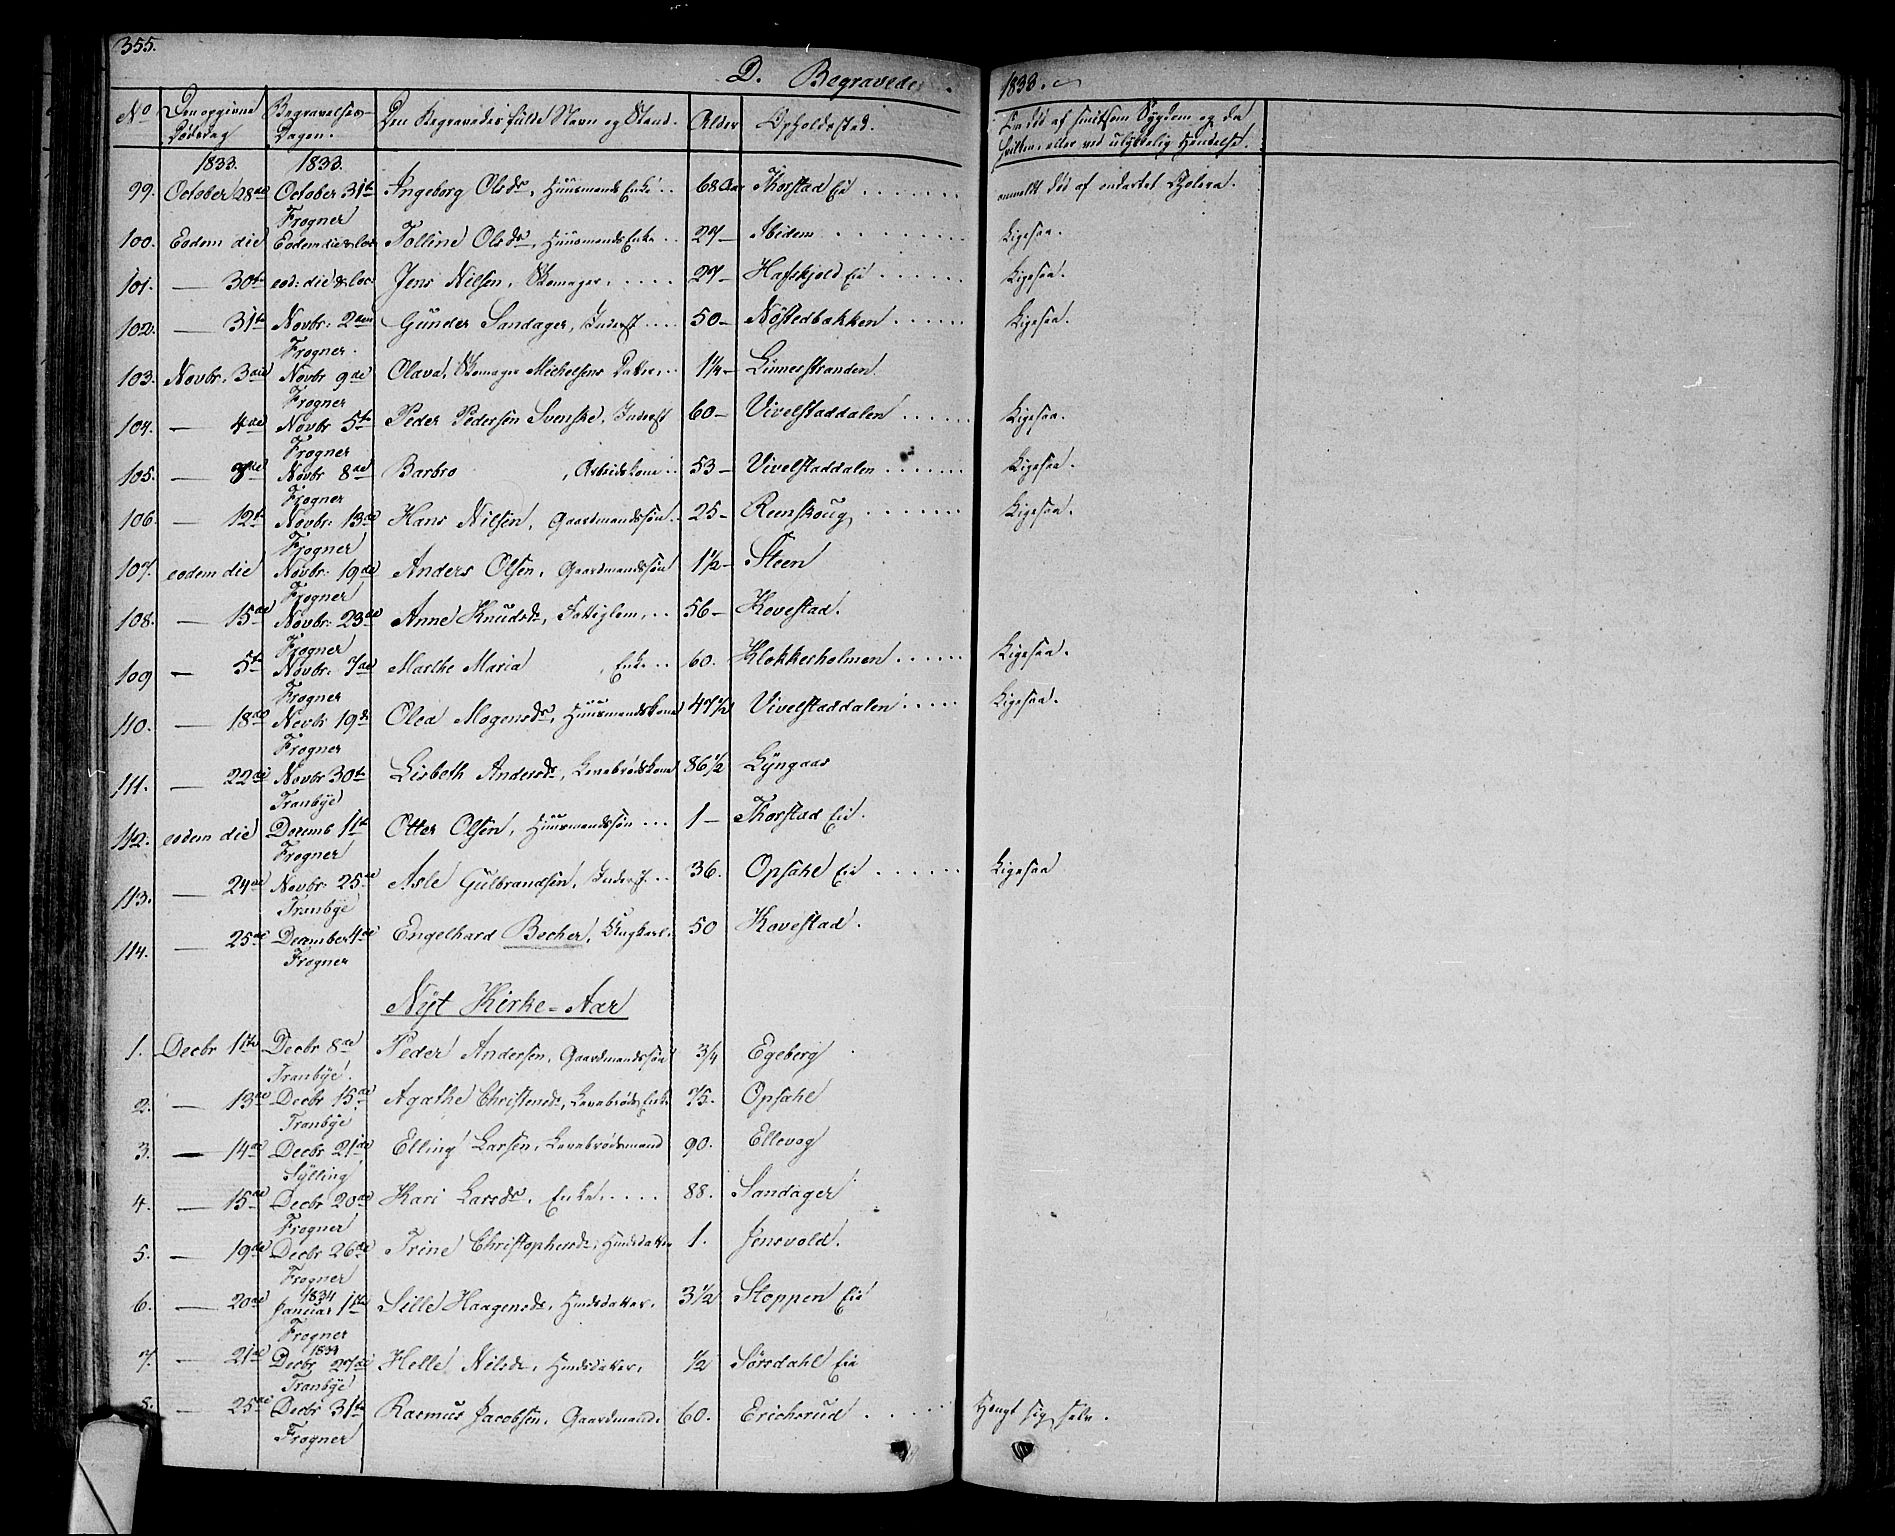 355.
D. Begravede 1833.
No Den opgivne Begravelses- Den Begravedes fulde Navn og Stand. Alder Opholdssted. Er død af smitsom Sygdom og da
Dødsdag Dagen. hvilken, eller ved ulykkelig Hændelse.
1833. 1833.
99. October 28de October 31te Ingeborg Olsdr, Huusmands Enke.. 68 Aar Thorstad Eie ...... anmeldt død af ondartet Cholera.
Frogner
100. Eodem die Eodem die & loco Tolline Olsdr, Huusmands Enke.. 27 — Ibidem ....... Ligesaa.
101. — 30te eod: die & loco Jens Nilsen, Skomager, ..... 27 — Hafskjold Eie ..... Ligesaa.
102. — 31te Novbr: 2den Gunder Sandager, Inderst .... 50 — Nøstedbakken ...... Ligesaa.
Frogner.
103. Novbr. 3die Novbr 9de Olava, Skomager Michelsens Datter, .. 1¼ — Linnesstranden.
Frogner
104. — 4de Novbr 5te Peder Pedersen Svenske, Inderst 60 — Vivelstaddalen ..... Ligesaa.
Frogner
105. — Novbr 8de Barbro , Arbeidskone.. 53 — Vivelstaddalen ...... Ligesaa.
Frogner
106. — 12te Novbr: 13de Hans Nilsen, Gaardmandssøn.. 25 — Reenskoug ....... Ligesaa.
Frogner
107. eodem die Novbr: 19de Anders Olsen, Gaardmandssøn 1½ — Steen
Frogner
108. — 15de Novbr: 23de Anne Knudsdr, Fattiglem, .. 56 — Kovestad.
Frogner
109 — 5te Novbr: 7de Marthe Maria , Enke.. 60. Klokkerholmen ...... Ligesaa.
Frogner
110. — 18de Novbr 19de Olea Mogensdr, Huusmandskone 47½ Vivelstaddalen ..... Ligesaa.
Frogner
111. — 22de Novbr 30te Lisbeth Andersdr, Levebrødskone 86½ Lyngaas
Tranbye
112. eodem die Decemb 1ste Otter Olsen, Huusmandssøn ... 1 — Thorstad Eie.
Frogner
113. — 24de Novbr: 25de Asle Gulbrandsen, Inderst .. 36. Opsahl Eie ...... Ligesaa
Tranbye
114. — 25de December 4de Engelhard Becher, Ungkarl. 50 Kovestad.
Frogner
Nyt Kirke-Aar
1. Decbr 1ste Decbr 8de Peder Andersen, Gaardmandssøn 3/4 Egeberg
Tranbye.
2. — 13de Decbr 15de Agathe Christensdr, Levebrøds Enke 75. Opsahl
Tranbye
3. — 14de Decbr 21de Elling Larsen, Levebrødsmand 90. Ellevog
Sylling
4. — 15de Decbr 20de Kari Larsdr, Enke, .... 88. Sandager
Frogner
5. — 19de Decbr 26de Trine Christophersdr, Huusdatter 1. Jensvold.
Frogner
1834
6. — 20de Januar 1ste Sille Haagensdr, Huusdatter, 3½ Stoppen Eie
Frogner
1834
7. — 21de Decbr 27de Helle Nilsdr, Huusdatter, ½ Sørsdahl Eie
Tranbye
8. — 25de Decbr 31te Rasmus Jacobsen, Gaardmand. 60. Erichsrud .... Hængt sig selv.
Frogner